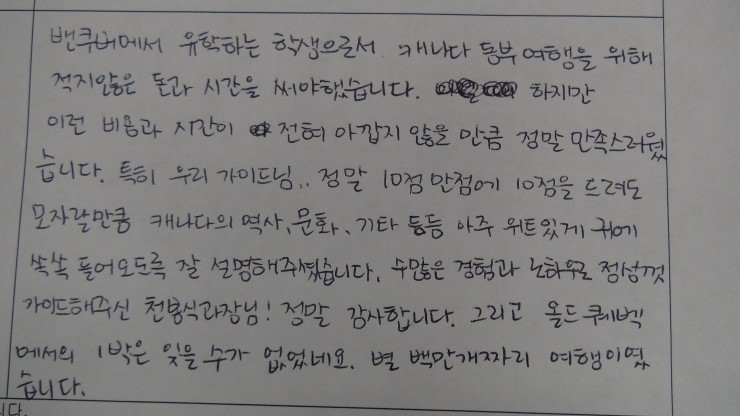 밴쿠버에서 유학하는 학생으로서 캐나다 동부여행을 위해
적지않은 돈과 시간을 써야했습니다. 하지만
이런 비용과 시간이 전혀 아깝지 않을 만큼 정말 만족스러웠
습니다. 특히 우리 가이드님.. 정말 10점 만점에 10점을 드려도
모자랄만큼 캐나다의 역사, 문화, 기타 등등 아주 위트있게 귀에
쏙쏙 들어오도록 잘 설명해주셨습니다. 수많은 경험과 노하우로 정성껏
가이드해주신 천봉식과장님! 정말 감사합니다. 그리고 올드퀘벡
에서의 1박은 잊을 수가 없었네요. 별 백만개짜리 여행이였
습니다.
니다.